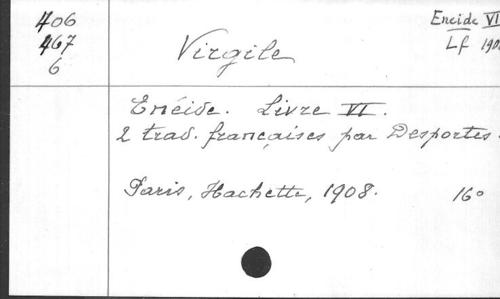 406
467
6
Virgile
Eneide VI
Lf 190
Enéide. Livre VI.
2 trad. françaises par Desportes.
Paris, Hachette, 1908. 16°